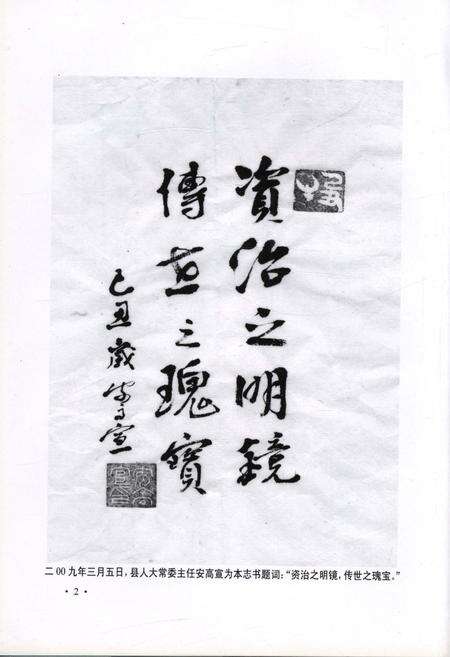 資治之明鏡
傳世之瑰寶
己丑歲安高宣
二00九年三月五日，县人大常委主任安高宣为本志书题词：“资治之明镜，传世之瑰宝。”
·2·